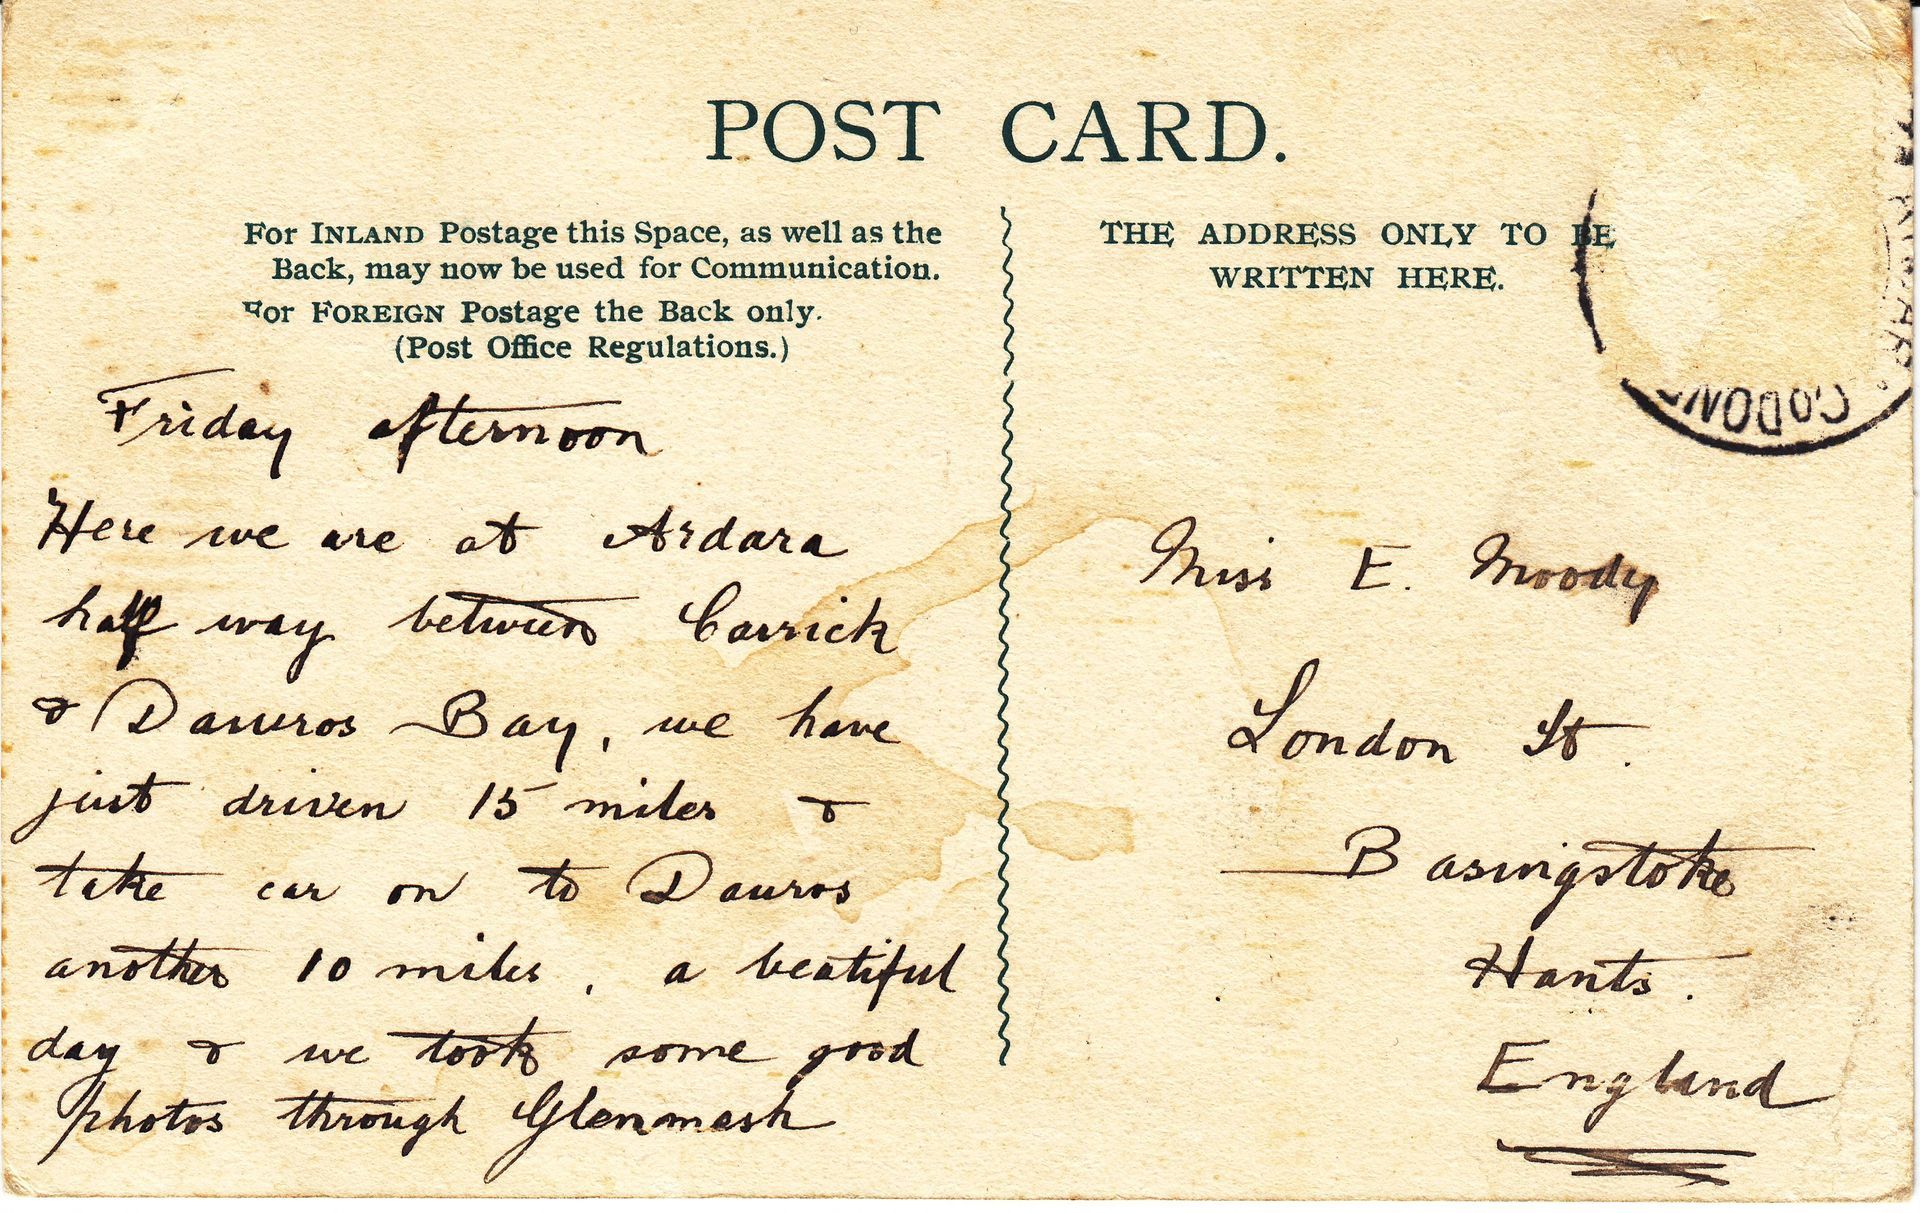 POST CARD.
For INLAND Postage this Space, as well as the
Back, may now be used for Communication.
For FOREIGN Postage the Back only.
(Post Office Regulations.)
THE ADDRESS ONLY TO BE
WRITTEN HERE.
Friday afternoon
Here we are at Ardara
half way between Carrick
& Dawros Bay, we have
just driven 15 miles &
take car on to Dawros
another 10 miles, a beatiful
day & we took some good
photos through Glenmesh
Miss E. Moody
London St.
Basingstoke
Hants.
England